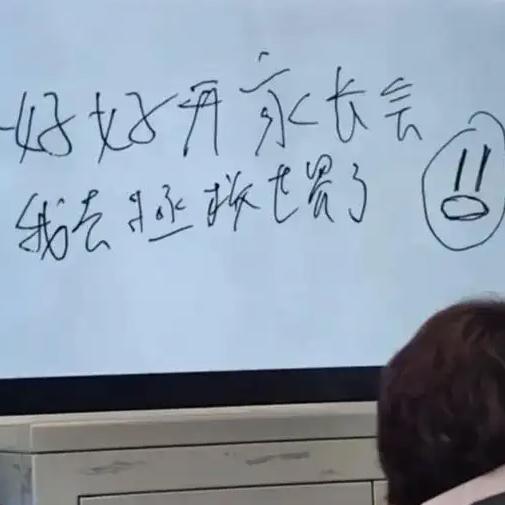 好好开家长会
我去拯救世界了